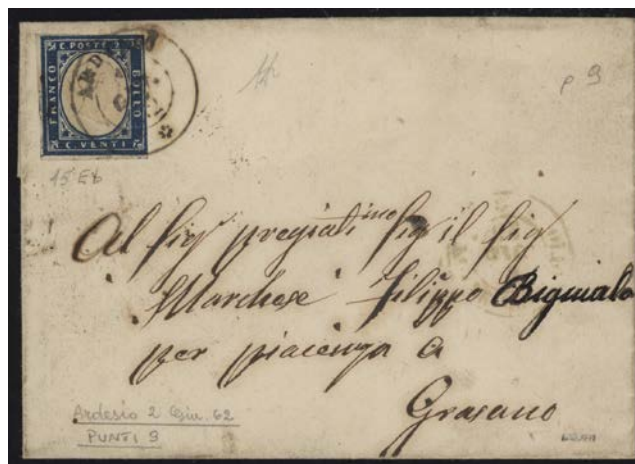 C. POSTE 20
FRANCO
BOLLO
C. VENTI
ARD
p 9
15 Eb
Al Sig pregiatimo Sig il Sig
Marchese Filippo
per piacenza a
Grasano
Ardesio 2 Giu. 62
PUNTI 9